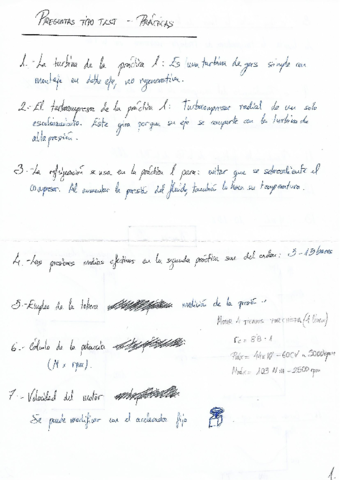 PREGUNTAS TIPO TEST - PRÁCTICAS
1.- La turbina de la práctica 1: Es una turbina de gas simple con
montaje en doble eje, no regenerativa.
2.- El turbocompresor de la práctica 1: Turbocompresor radial de un solo
escalonamiento. Este gira porque su eje se comparte con la turbina de
alta presión.
3.- La refrigeración se usa en la práctica 1 para: evitar que se sobrecaliente el
compresor. Al aumentar la presión del fluido, también lo hace su temperatura.
4.- Las presiones medias efectivas en la segunda práctica son del orden: 5-15 bares
5.- Empleo de la medición de la presión.
MOTOR 4 TIEMPOS
6.- Cálculo de la potencia
(M, rpm)
7.- Velocidad del motor
Se puede modificar con el acelerador fijo
1.